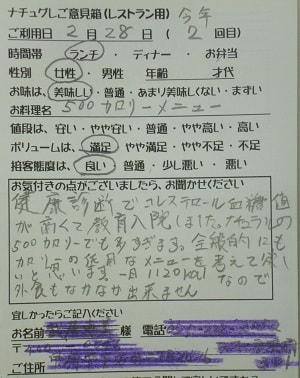 ナチュグレご意見箱(レストラン用) 今年
ご利用日 2月28日 (2回目)
時間帯 ランチ ・ ディナー ・ お弁当
性別 女性 ・ 男性 年齢 才代
お味は、美味しい・普通・あまり美味しくない・まずい
お料理名 500カロリーメニュー
値段は、安い・やや安い・普通・やや高い・高い
ボリュームは、満足 やや満足・やや不足・不足
接客態度は、良い・普通・少し悪い・悪い
お気付きの点がございましたら、お聞かせください
健康診断でコレステロール血糖値
が高くて教育入院しました。ナチュラルの
500カロリーでも多すぎます。全般的にも
カロリーの低いメニューを考えて欲し
いと思います 一月1120kcalなので
外食もなかなか出来ません
宜しかったらご記入ください
お名前 様 電話
〒
ご住所